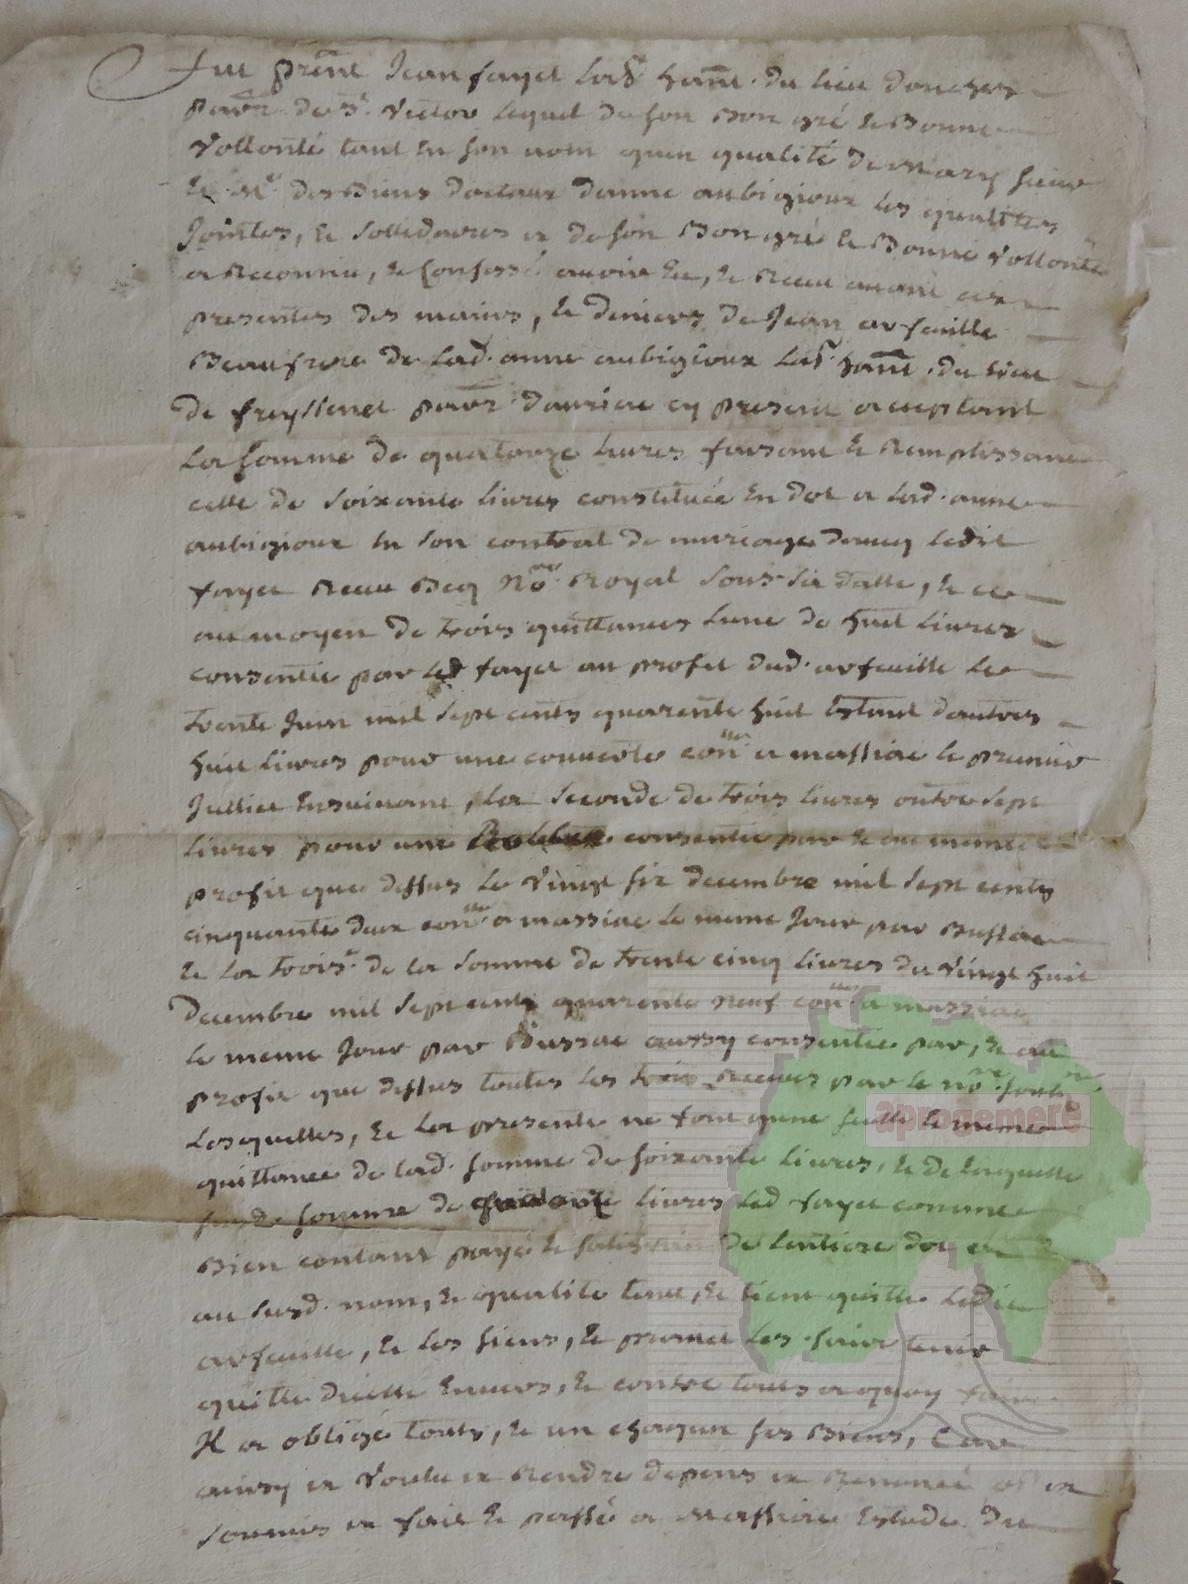 Fut prēnt Jean fayet Labr. hānt. du lieu
parr. de St. Victor lequel de son Bon gré & Bonne
Vollonté tant en son nom quen qualité de mary sieur
& Mr. des Biens doctaux danne aubigioux les qualittes
Jointes, & sollidaires et de son Bon gré & Bonne Vollonté
a Reconnu, & Confessé avoir Eu, & Receu avant ces
presentes des mains, & deniers de Jean arfeuille
Beaufrere de Lad. anne aubigioux Labr. hānt. du lieu
de freyssenet parr. dauriac cy present acceptant
La somme de quatorze livres faisant & Remplissant
celle de soixante livres constituée En dot a lad. anne
aubigioux en son contrat de mariage davecq ledit
fayet Receu Beq Nore. Royal sous sa datte, & ce
au moyen de trois quittances lune de huit livres
consentie par led fayet au profit dud. arfeuille le
trente Juin mil sept cents quarente huit Estant dautres
huit livres pour une couverte conllé a massiac le premier
Juillet Ensuivant, La seconde de trois livres outre sept
livres pour une Robbe consentie par & au meme
profit que dessus le Vingt six decembre mil sept cents
cinquante deux conllé a massiac le meme Jour par Bussac
& La trois.e de la somme de trente cinq livres du Vingt huit
decembre mil sept cents quarente neuf conllé a massiac
le meme Jour par Bussac aussy consentie par, & au
profit que dessus toutes les trois Receues par le nore. soub.né
Lesquelles, & La presente ne font qune seulle & meme
quittance de lad. somme de soixante livres, & de laquelle
susd. somme de livres led fayet comme
Bien contant payé & satisfait de Lentiere dot et
au susd. nom, & qualite tenu, & tient quitte Ledit
arfeuille, & les siens, & promet les faire tenir
quitte dicelle Envers, & contre touts a quoy faire
Il a obligé touts, & un chaqun ses Biens, Car
ainsy et Voulu et Rendre depens et Renoncé et
soumis et fait & passé a Massiac Estude du
aprogemere